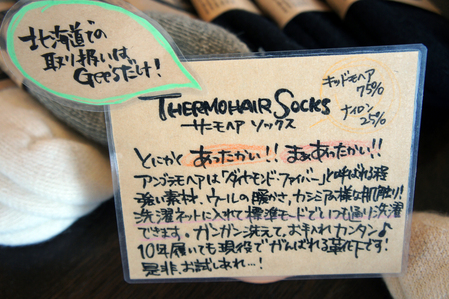 北海道での
取り扱いは、
Gee'sだけ!
THERMOHAIR SOCKS
サーモヘア ソックス
キッドモヘア
75%
ナイロン
25%
とにかく あったかい!! まぁあったかい!!
アンゴラモヘアは「ダイヤモンド・ファイバー」と呼ばれる程
強い素材。ウールの暖かさ、カシミアの様な肌触り!
洗濯ネットに入れて標準モードでいつも通り洗濯
できます。ガンガン洗えて、お手入れカンタン♪
10年履いても現役でがんばれる靴下です!
是非、お試しあれ…!